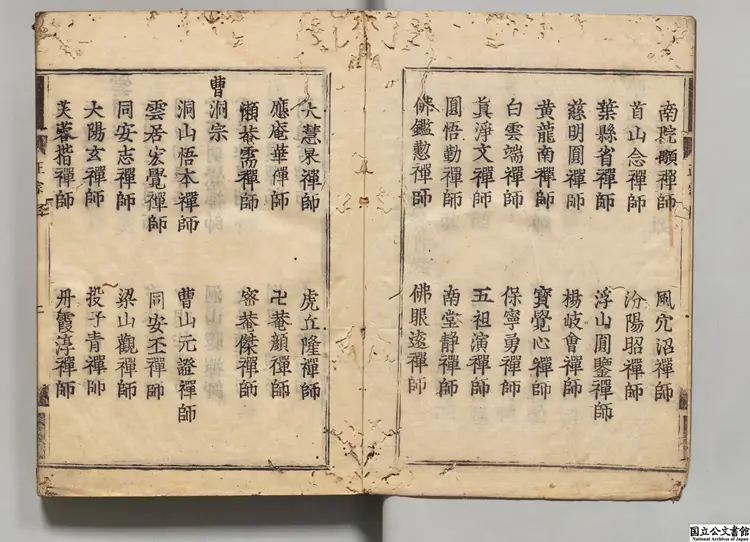 南院顒禪師 風穴沼禪師
首山念禪師 汾陽昭禪師
葉縣省禪師 浮山圓鑒禪師
慈明圓禪師 楊岐會禪師
黃龍南禪師 寶覺心禪師
白雲端禪師 保寧勇禪師
真淨文禪師 五祖演禪師
圓悟勤禪師 南堂靜禪師
佛鑑懃禪師 佛眼遠禪師
大慧杲禪師 虎丘隆禪師
應庵華禪師 卍菴顏禪師
懶菴需禪師 密菴傑禪師
曹洞宗
洞山悟本禪師 曹山元證禪師
雲居宏覺禪師 同安丕禪師
同安志禪師 梁山觀禪師
大陽玄禪師 投子青禪師
芙蓉楷禪師 丹霞淳禪師
国立公文書館
National Archives of Japan